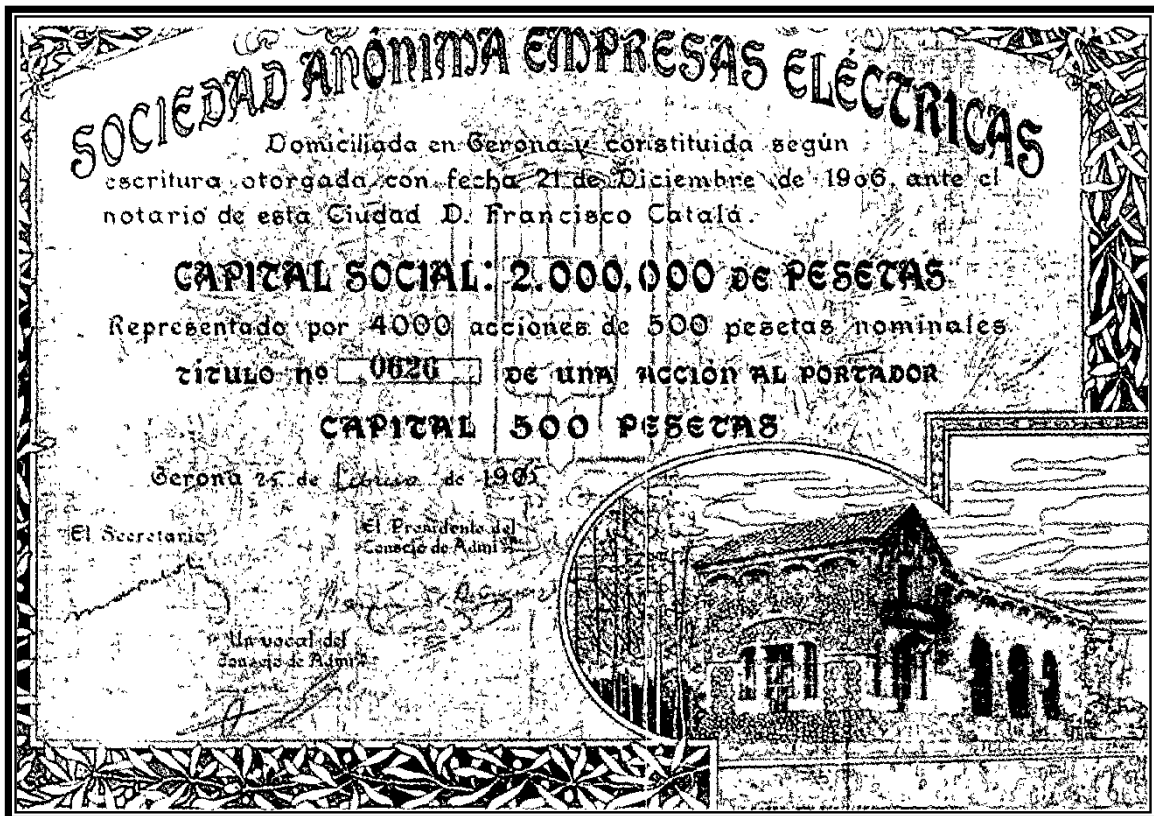 SOCIEDAD ANÓNIMA EMPRESAS ELÉCTRICAS
Domiciliada en Gerona y constituida según
escritura otorgada con fecha 21 de Diciembre de 1906 ante el
notario de esta Ciudad D. Francisco Catalá.
CAPITAL SOCIAL: 2.000.000 DE PESETAS
Representado por 4000 acciones de 500 pesetas nominales
TÍTULO nº 0626 DE UNA ACCIÓN AL PORTADOR
CAPITAL 500 PESETAS
Gerona 25 de Febrero de
El Secretario
El Presidente del
Consejo de Admi
Un vocal del
Consejo de Admi